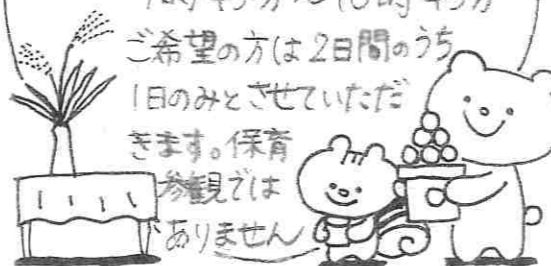 ご希望の方は2日間のうち
1日のみとさせていただ
きます。保育
参観では
ありません